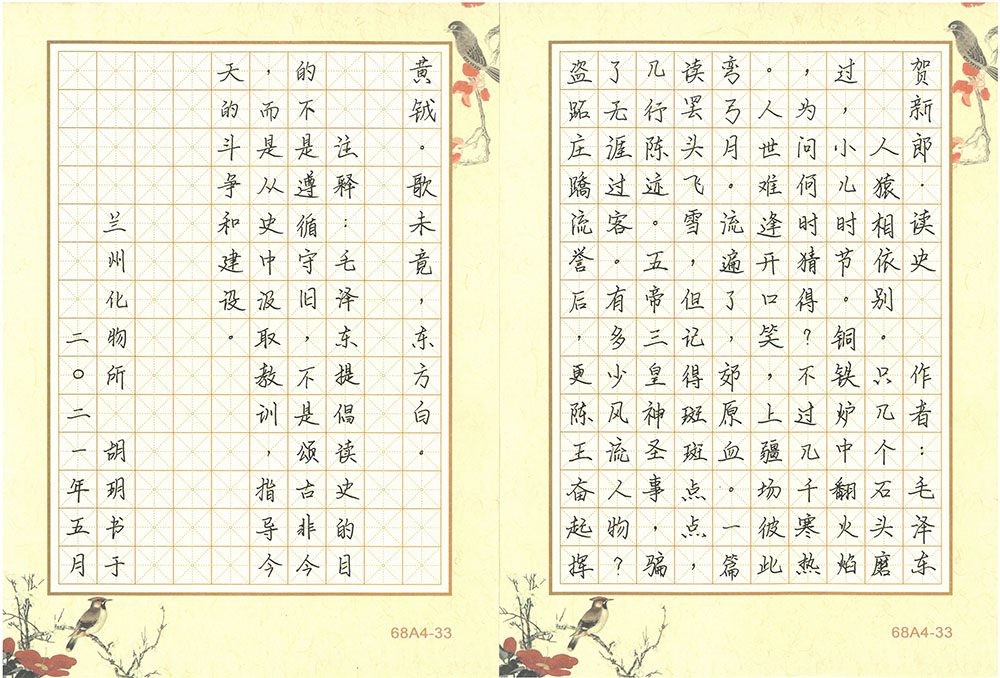 贺新郎·读史 作者：毛泽东
人猿相依别。只几个石头磨
过，小儿时节。铜铁炉中翻火焰
，为问何时猜得？不过几千寒热
。人世难逢开口笑，上疆场彼此
弯弓月。流遍了，郊原血。一篇
读罢头飞雪，但记得斑斑点点，
几行陈迹。五帝三皇神圣事，骗
了无涯过客。有多少风流人物？
盗跖庄蹻流誉后，更陈王奋起挥
68A4-33
黄钺。歌未竟，东方白。
注释：毛泽东提倡读史的目
的不是遵循守旧，不是颂古非今
，而是从史中汲取教训，指导今
天的斗争和建设。
兰州化物所 胡玥书于
二〇二一年五月
68A4-33